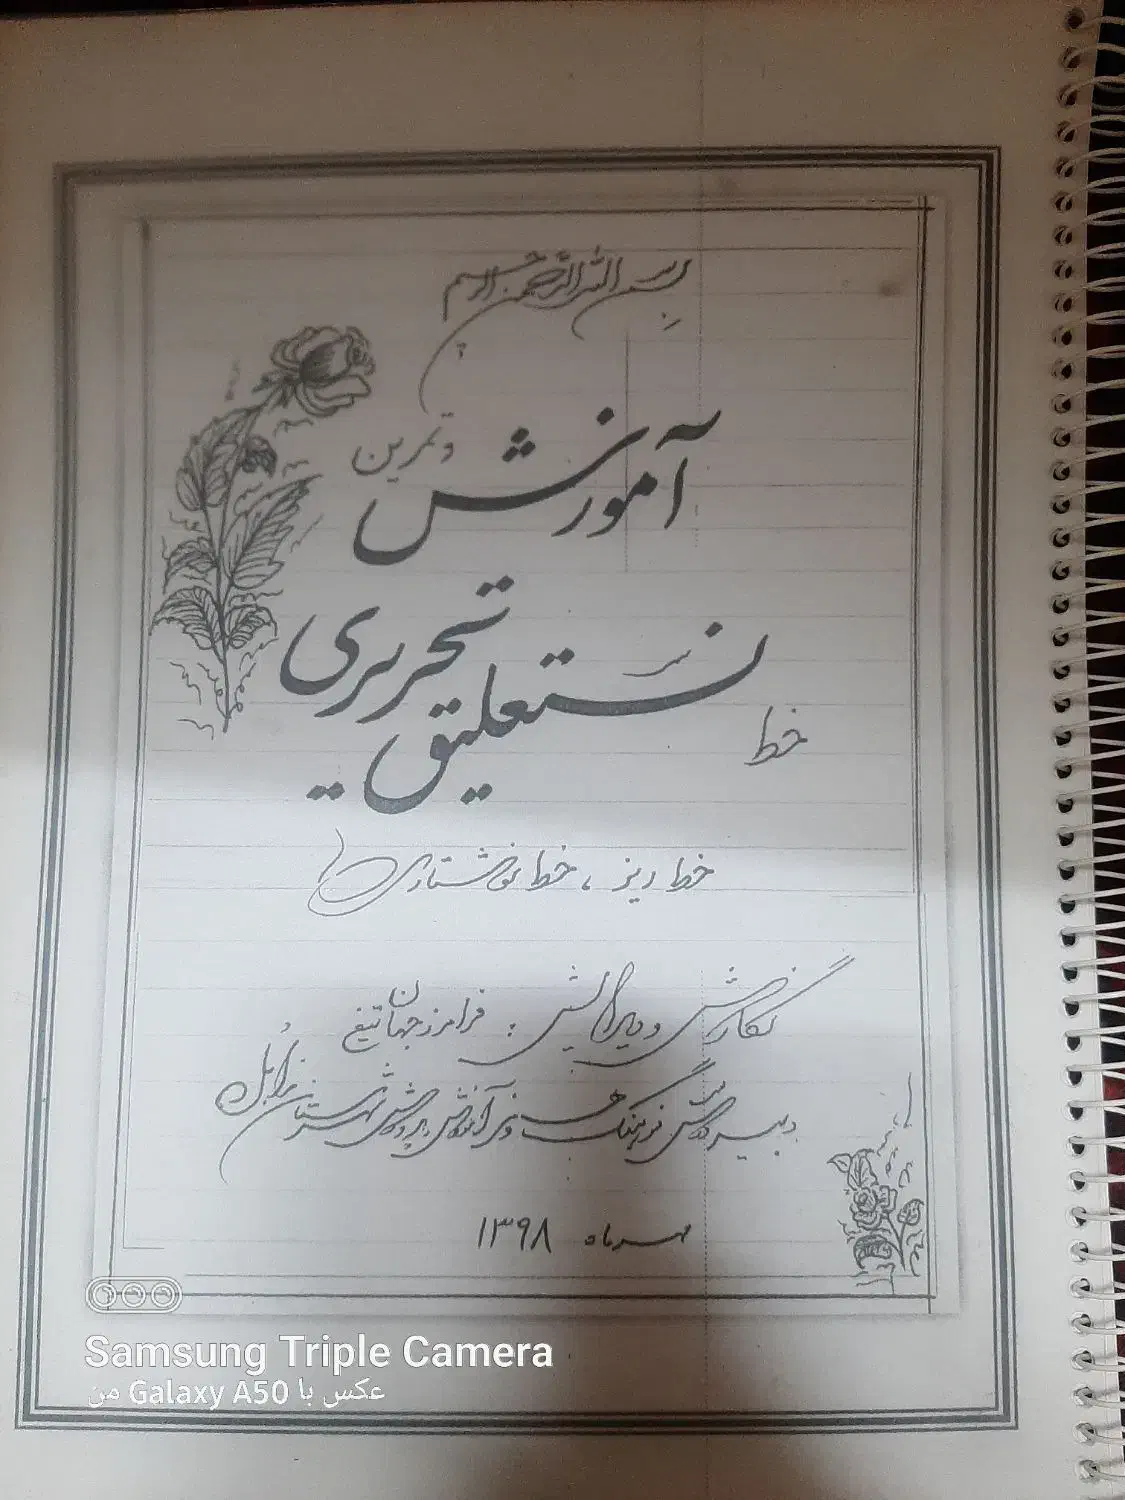 بسم الله الرحمن الرحیم
آموزش و تمرین
خط نستعلیق تحریری
خط ریز ، خط نوشتاری
نگارش و ویرایش : فرامرز جهان تیغ
دبیر فرهنگ هنر و آموزش و پرورش شهرستان زابل
مهرماه ۱۳۹۸
Samsung Triple Camera
عکس با Galaxy A50 من